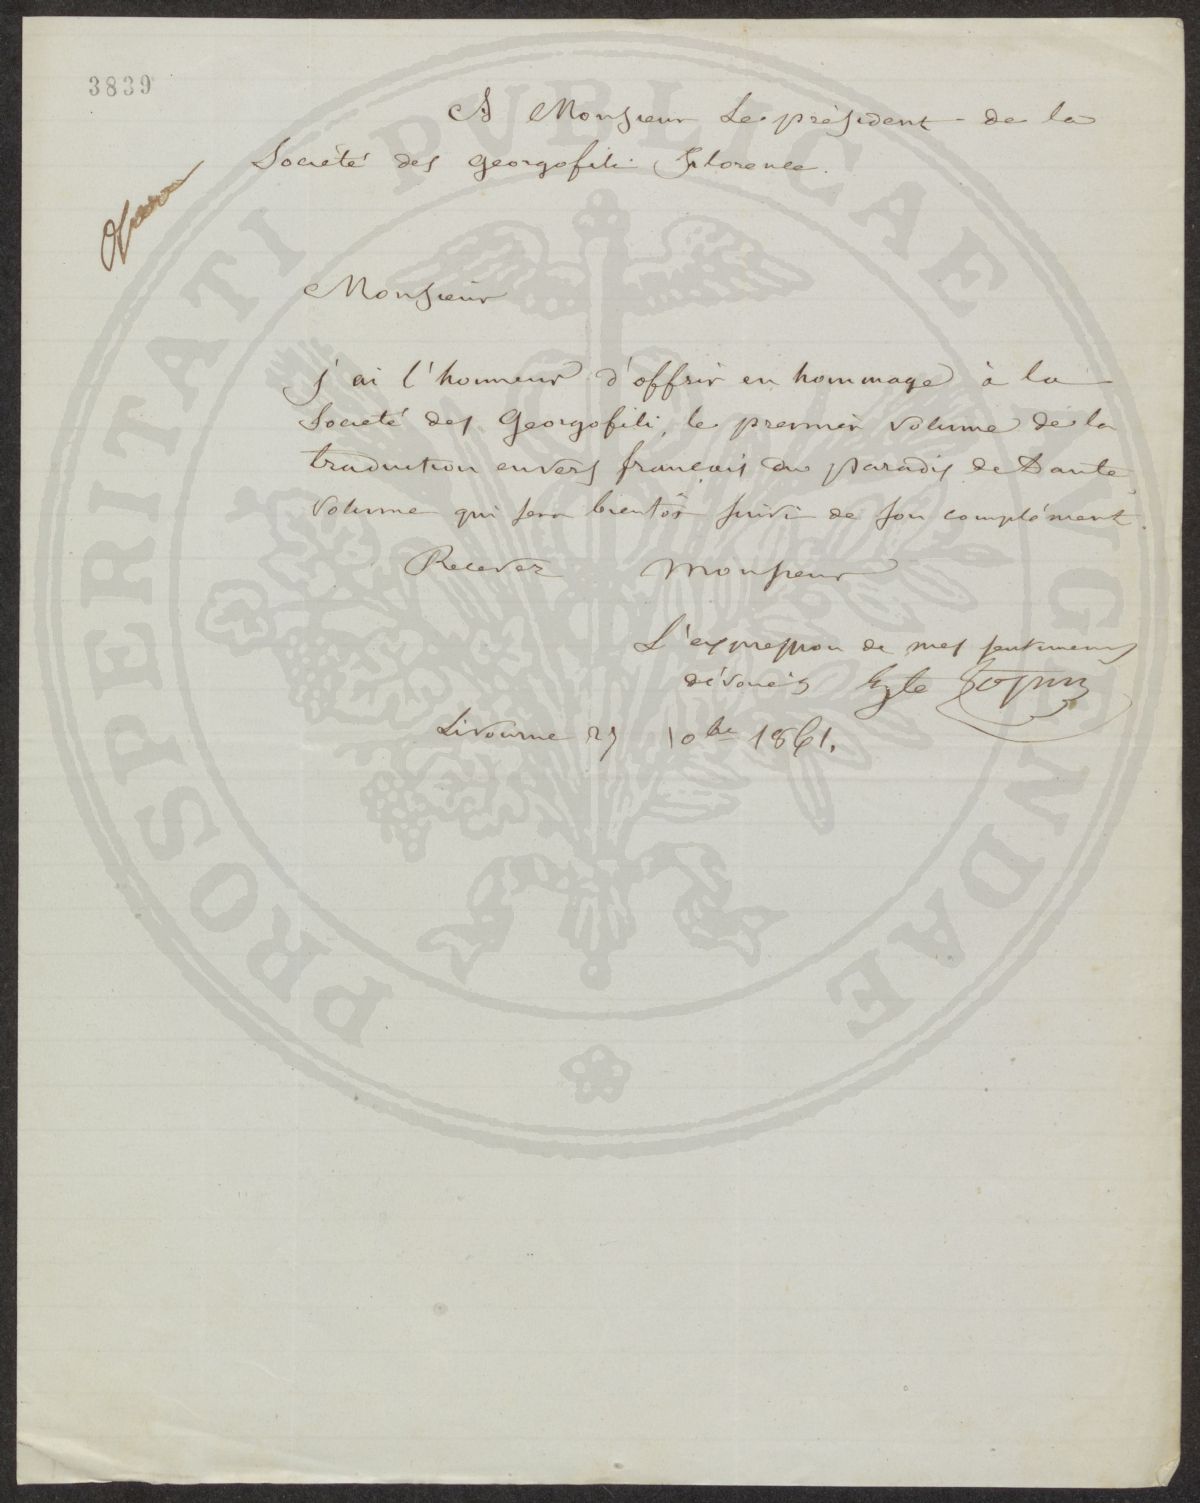 3839
A Monsieur Le président de la
Societé des georgofili Florence.
Monsieur
j'ai l'honneur d'offrir en hommage à la
Societé des Georgofili, le premier volume de la
traduction en vers français du paradis de Dante,
volume qui sera bientôt suivi de son complément.
Recevez Monsieur
L'expression de mes sentimens
dévoués
Livourne 10bre 1861.
PROSPERITATI PVBLICAE AVGENDAE